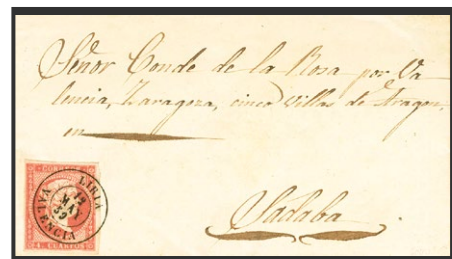 Señor Conde de la Rosa por Va
lencia, Zaragoza, cinco Villas de Aragon,
en
Sadaba
CORREOS
LIRIA
MAY
VALENCIA
4 CUARTOS